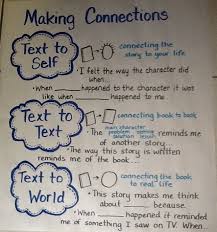 Making Connections
Text to Self
connecting the
story to your life
• I felt the way the character did
when...
• When ______ happened to the character it was
like when ______ happened to me.
Text to Text
connecting book to book
• The main character problem setting solution reminds me
of another story...
• The way this story is written
reminds me of the book ______
Text to World
connecting the book
to "real" life
• This story makes me think
about ______ because...
• When ______ happened it reminded
me of something I saw on TV. When...